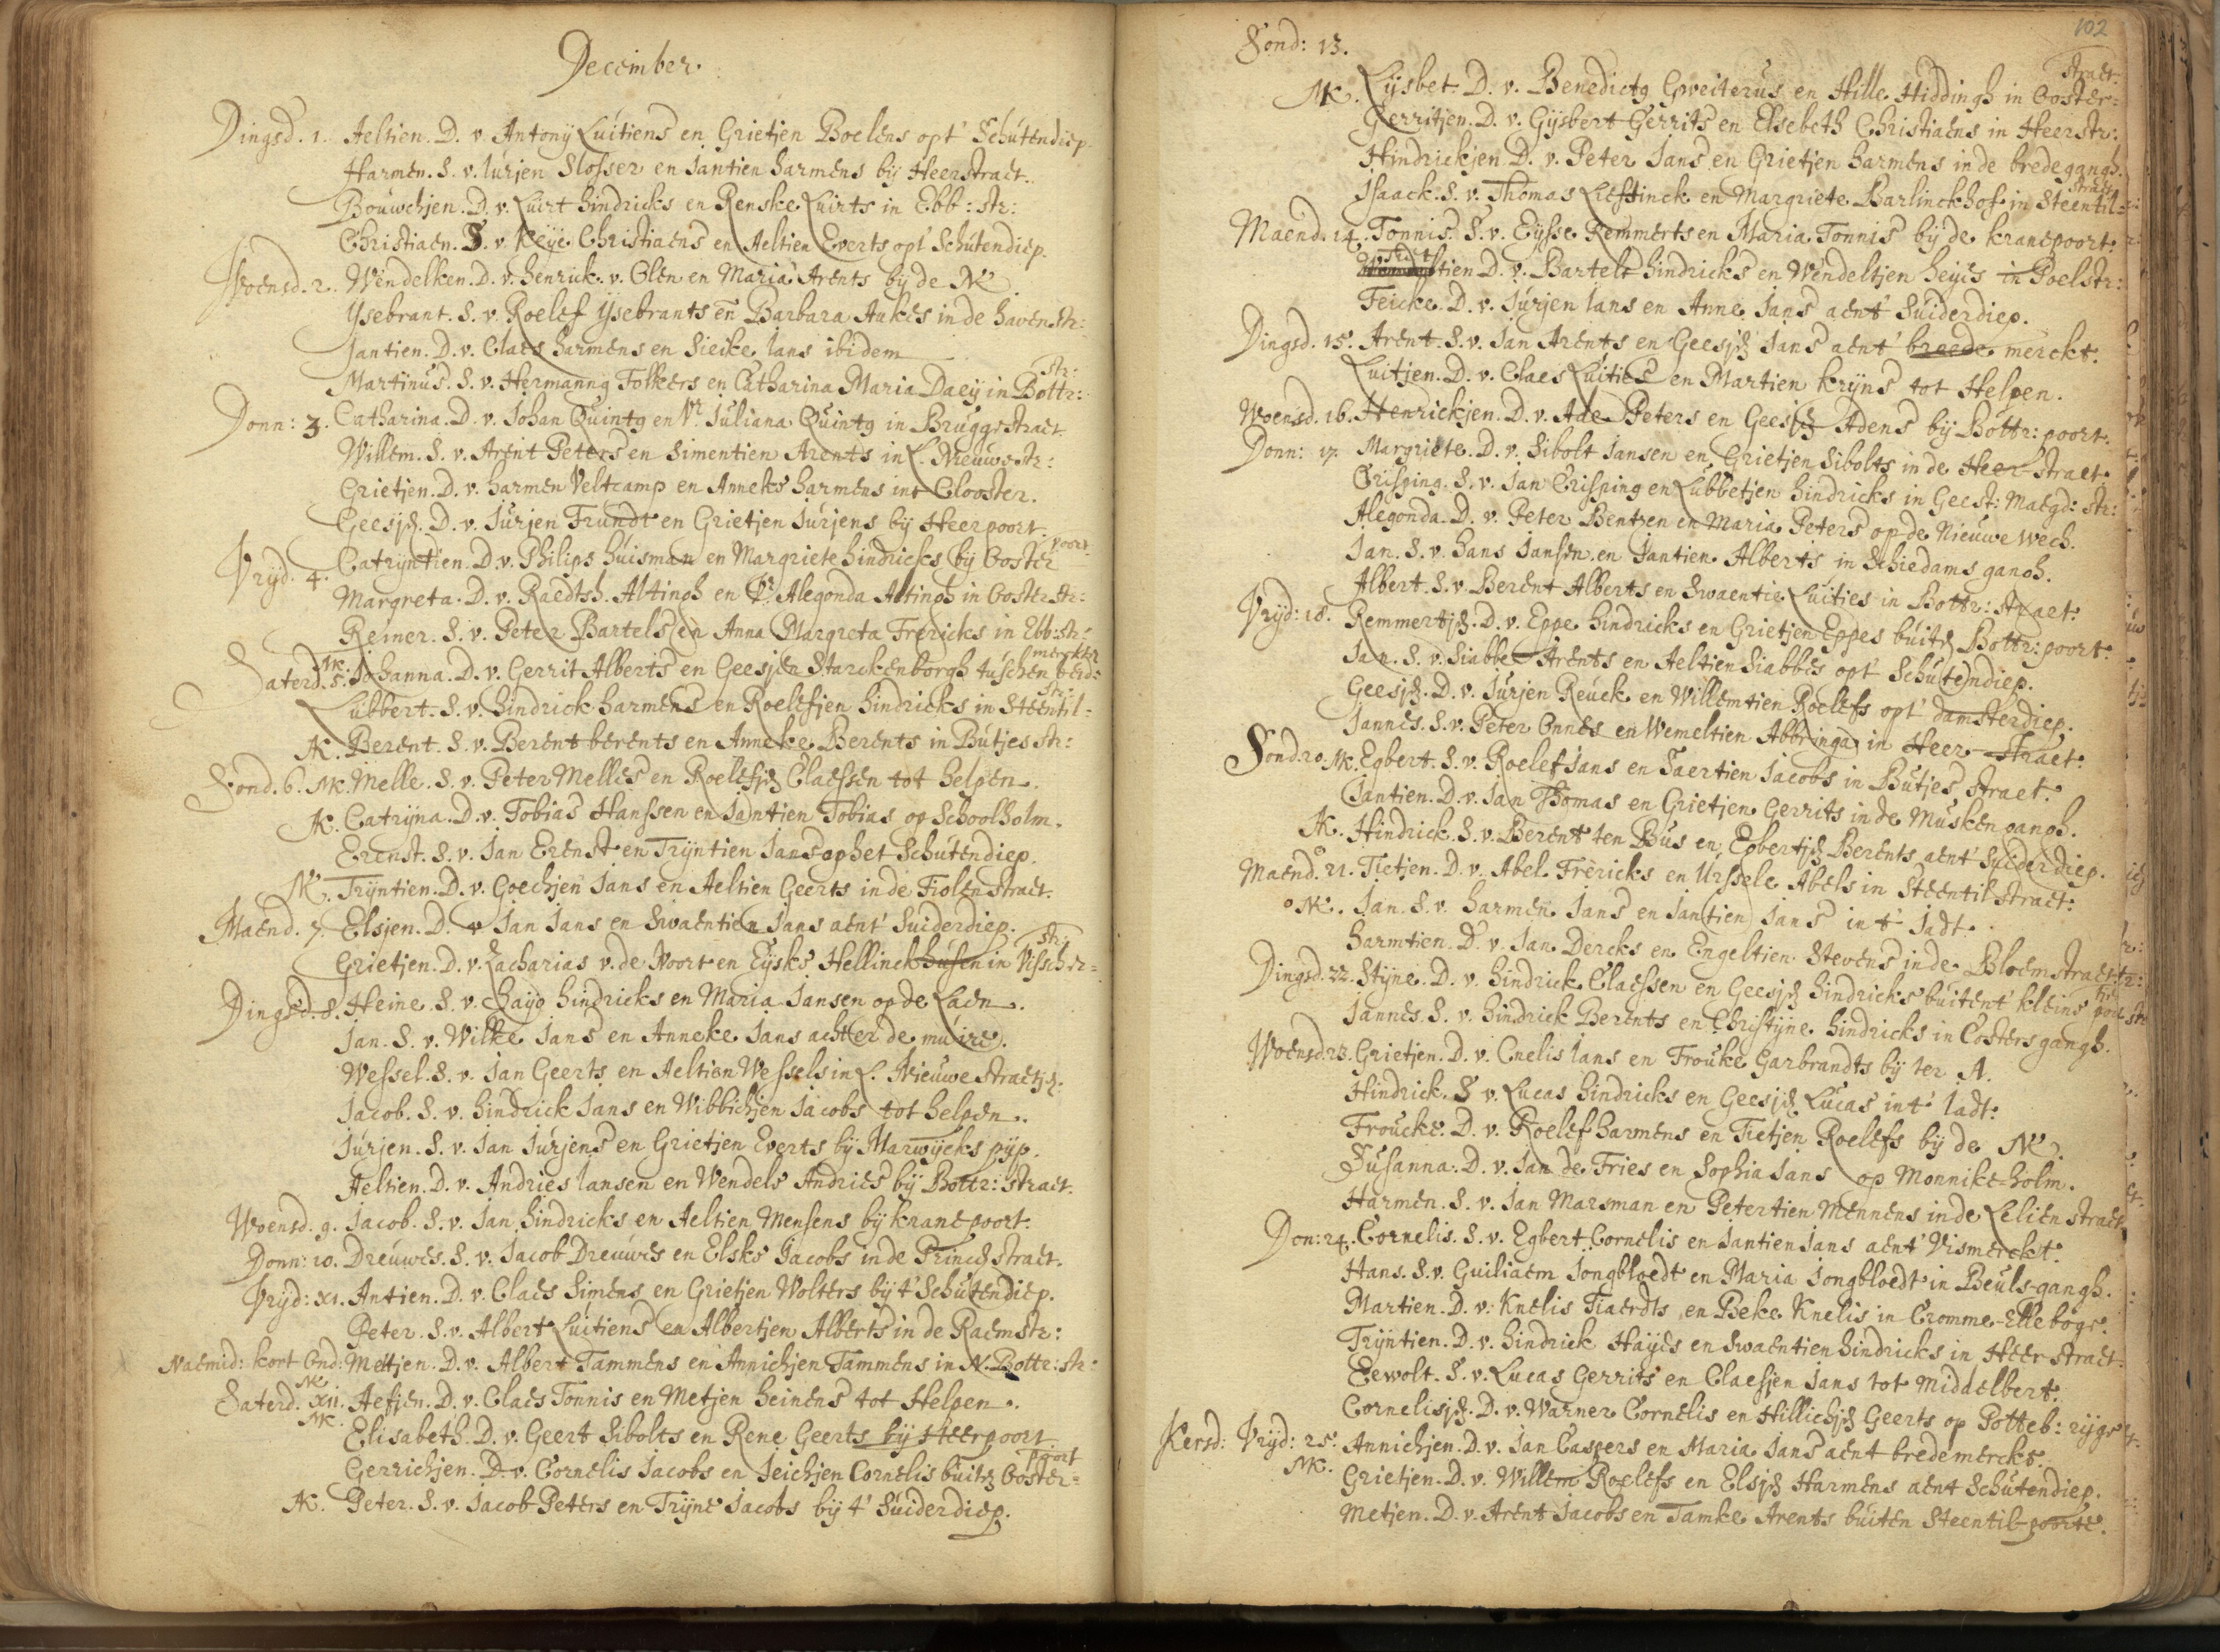 December.
Dingsd. 1. Aeltien. D. v. Antonij Luitiens en Grietjen Boelens opt' Schutendiep.
Harmen. S. v. Iurjen Slosser en Jantien harmens bij Heerstraet.
Bouwchjen. D. v. Luirt hindricks en Renske Luirts in Ebb: str:
Christiaen. S. v. Keije Christiaens en Aeltien Everts opt' Schutendiep.
Woensd. 2. Wendelken. D. v. henrick. v. Olen en Maria Arents bij de NK
Ysebrant. S. v. Roelef Ysebrants en Barbara Aukes in de haven str:
Jantien. D. v. Claes harmens en Sieike Ians ibidem
Martinus. S. v. Hermannꝯ Folkers en Catharina Maria Daeij in Bottr: str:
Donn: 3. Catharina. D. v. Johan Quintꝯ en Vr. Juliana Quintꝯ in Bruggestraet
Willem. S. v. Arent Peters en Simentien Arents in L. Nieuwe str:
Grietjen. D. v. harmen Veltcamp en Anneke harmens int Clooster.
Geesjen. D. v. Jurjen Frundt en Grietjen Jurjens bij Heerpoort.
Vrijd. 4. Catrijntien. D. v. Philips huisman en Margriete hindricks bij Ooster poort
Margreta. D. v. Raedtsh. Altingh en Vr. Alegonda Altingh in Ooster str:
Reiner. S. v. Peter Bartels en Anna Margreta Frericks in Ebb: str:
Saterd. 5. NK. Johanna. D. v. Gerrit Alberts en Geesjen Starckenborgh tuschen beid: merckten
Lubbert. S. v. hindrick harmens en Roelefjen hindricks in Steentil- str:
AK. Berent. S. v. Berent berents en Anneke Berents in Butjes str:
Sond. 6. NK. Melle. S. v. Peter Melles en Roelefjen Claessen tot helpen.
AK. Catrijna. D. v. Tobias Hanssen en Jantien Tobias op Schoolholm.
Erenst. S. v. Jan Erenst en Trijntien Jans op het Schutendiep.
NK. Trijntien. D. v. Goechjen Jans en Aeltien Geerts in de Fiolenstraet.
Maend. 7. Elsjen. D. v Jan Jans en Swaentien Jans aent' Suiderdiep.
Grietjen. D. v. Zacharias v. de Noort en Eijske Hellinckhusen in Visscher- str:
Dingsd. 8. Heine. S. v. haijo hindricks en Maria Jansen op de Laen.
Jan. S. v. Wilke Jans en Anneke Jans achter de muire.
Wessel. S. v. Jan Geerts en Aeltien Wessels in L. Nieuwe straetjen:
Jacob. S. v. hindrick Jans en Wibbichjen Jacobs tot helpen.
Jurjen. S. v. Jan Jurjens en Grietjen Everts bij Marwijcks pijp.
Aeltien. D. v. Andries Iansen en Wendele Andries bij Bottr: straet.
Woensd. 9. Jacob. S. v. Jan hindricks en Aeltien Mensens bij kranepoort.
Donn: 10. Dreuwes. S. v. Jacob Dreuwes en Elske Jacobs in de Princenstraet.
Vrijd: XI. Antien. D. v. Claes Simens en Grietjen Wolters bij t' Schutendiep.
Peter. S. v. Albert Luitiens en Albertjen Alberts in de Raemstr:
Naemid: kort Ond: Mettjen. D. v. Albert Tammens en Annichjen Tammens in N. Bottr: str:
Saterd. XII. NK. Aefjen. D. v. Claes Tonnis en Metjen heinens tot Helpen.
NK. Elisabeth. D. v. Geert Sibolts en Rene Geerts bij Heerpoort
Gerrichjen. D. v. Cornelis Jacobs en Jeichjen Cornelis buiten Ooster- poort
AK. Peter. S. v. Jacob Peters en Trijne Jacobs bij t' Suiderdiep.
102
Sond: 13.
NK. Lijsbet. D. v. Benedictꝯ Gweiterus en Hille Hiddingh in Ooster- straet.
Gerritjen. D. v. Gijsbert Gerrits en Elsebeth Christiaens in Heerstr:
Hindrickjen. D. v. Peter Jans en Grietjen harmens in de bredegangh.
Isaack. S. v. Thomas Lieftinck en Margriete Barlinckhof in Steentil- straet
Maend. 14. Tonnis. S. v. Eijsse Remmerts en Maria Tonnis bij de kranepoort.
D. v. Bartelt hindricks en Wendeltjen heijes in Poelstr:
Feicke. D. v. Jurjen Jans en Anne Jans aent' Suiderdiep.
Dingsd. 15. Arent. S. v. Jan Arents en Geesjen Jans aent' breede merckt.
Luitjen. D. v. Claes Luities en Martien krijns tot Helpen.
Woensd. 16. Henrickjen. D. v. Ade Peters en Geesjen Adens bij Bottr: poort.
Donn: 17. Margriete. D. v. Sibolt Jansen en Grietjen Sibolts in de Heer straet.
Crisping. S. v. Jan Crisping en Lubbetjen hindricks in Geest: Maegd: str:
Alegonda. D. v. Peter Bentzen en Maria Peters op de Nieuwe wech.
Jan. S. v. hans Jansen en Jantien Alberts in Schiedams gangh.
Albert. S. v. Berent Alberts en Swaentie Luities in Bottr: straet.
Vrijd: 18. Remmertjen. D. v. Eppe hindricks en Grietjen Eppes buiten Bottr: poort.
Jan. S. v. Siabbe Arents en Aeltien Siabbes opt' Schutendiep.
Geesjen. D. v. Jurjen Reuck en Willemtien Roelefs opt' damsterdiep.
Jannes. S. v. Peter Onnes en Wemeltien Abbringa in Heer straet.
Sond. 20. NK. Egbert. S. v. Roelef Jans en Taertien Jacobs in Butjes straet.
Jantien. D. v. Jan Thomas en Grietjen Gerrits in de Muskengangh.
AK. Hindrick. S. v. Berent ten Bus en Egbertjen Berents aent' Suiderdiep.
Maend. 21. Tietjen. D. v. Abel Frericks en Urssele Abels in Steentilstraet.
NK. Jan. S. v. harmen Jans en Jantien Jans int' Jadt.
harmtien. D. v. Jan Dercks en Engeltien Stevens in de Bloemstraet.
Dingsd. 22. Stijne. D. v. hindrick Claessen en Geesjen hindricks buitent' kleine
Jannes. S. v. hindrick Berents en Christijne hindricks in Costers gangh.
Woensd. 23. Grietjen. D. v. Cnelis Jans en Frouke Garbrandts bij ter A.
Hindrick. S v. Lucas hindricks en Geesjen Lucas int' Jadt.
Froucke. D. v. Roelef harmens en Tietjen Roelefs bij de NK.
Susanna. D. v. Jan de Fries en Sophia Jans op Monnike-holm.
Harmen. S. v. Jan Marsman en Petertien Mennens in de Lelien straet
Don: 24. Cornelis. S. v. Egbert Cornelis en Jantien Jans aent' Vismerckt.
Hans. S. v. Guiliaem Jongbloedt en Maria Jongbloedt in Beuls-gangh.
Martien. D. v. Knelis Tiaerdts en Beke Knelis in Cromme-Elleboge.
Trijntien. D. v. hindrick Haijes en Swaentien hindricks in Heerstraet.
Eewolt. S. v. Lucas Gerrits en Claesjen Jans tot Middelbert.
Cornelisjen. D. v. Warner Cornelis en Hillichjen Geerts op Potteb: rijge
Kersd: Vrijd: 25. Annichjen. D. v. Jan Caspers en Maria Jans aent brede merckt.
NK. Grietjen. D. v. Willem Roelefs en Elsjen Harmens aent Schutendiep.
Metjen. D. v. Arent Jacobs en Tamke Arents buiten Steentil-poorte.